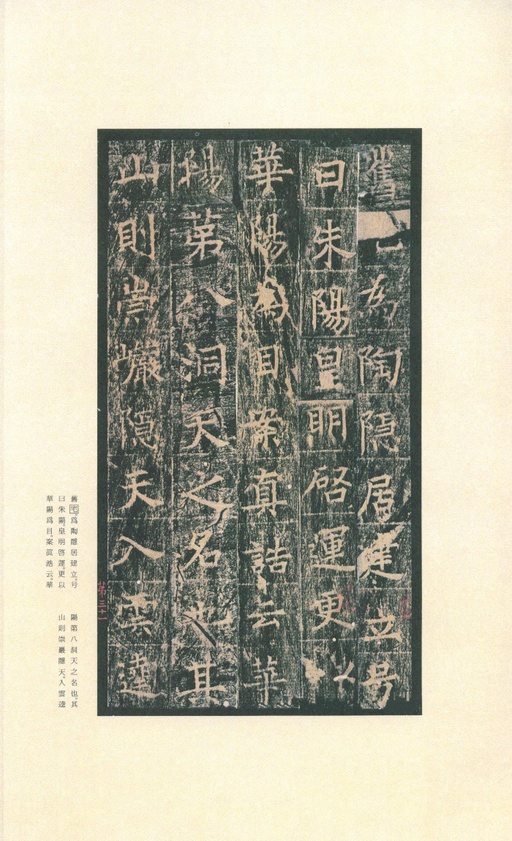 舊宅爲陶隱居建立号
曰朱陽皇明啓運更以
華陽爲目案真誥云華
陽第八洞天之名也其
山則崇巖隱天入雲達
舊宅爲陶隱居建立号
曰朱陽皇明啓運更以
華陽爲目案眞誥云華
陽第八洞天之名也其
山則崇巖隱天入雲達
第三十一